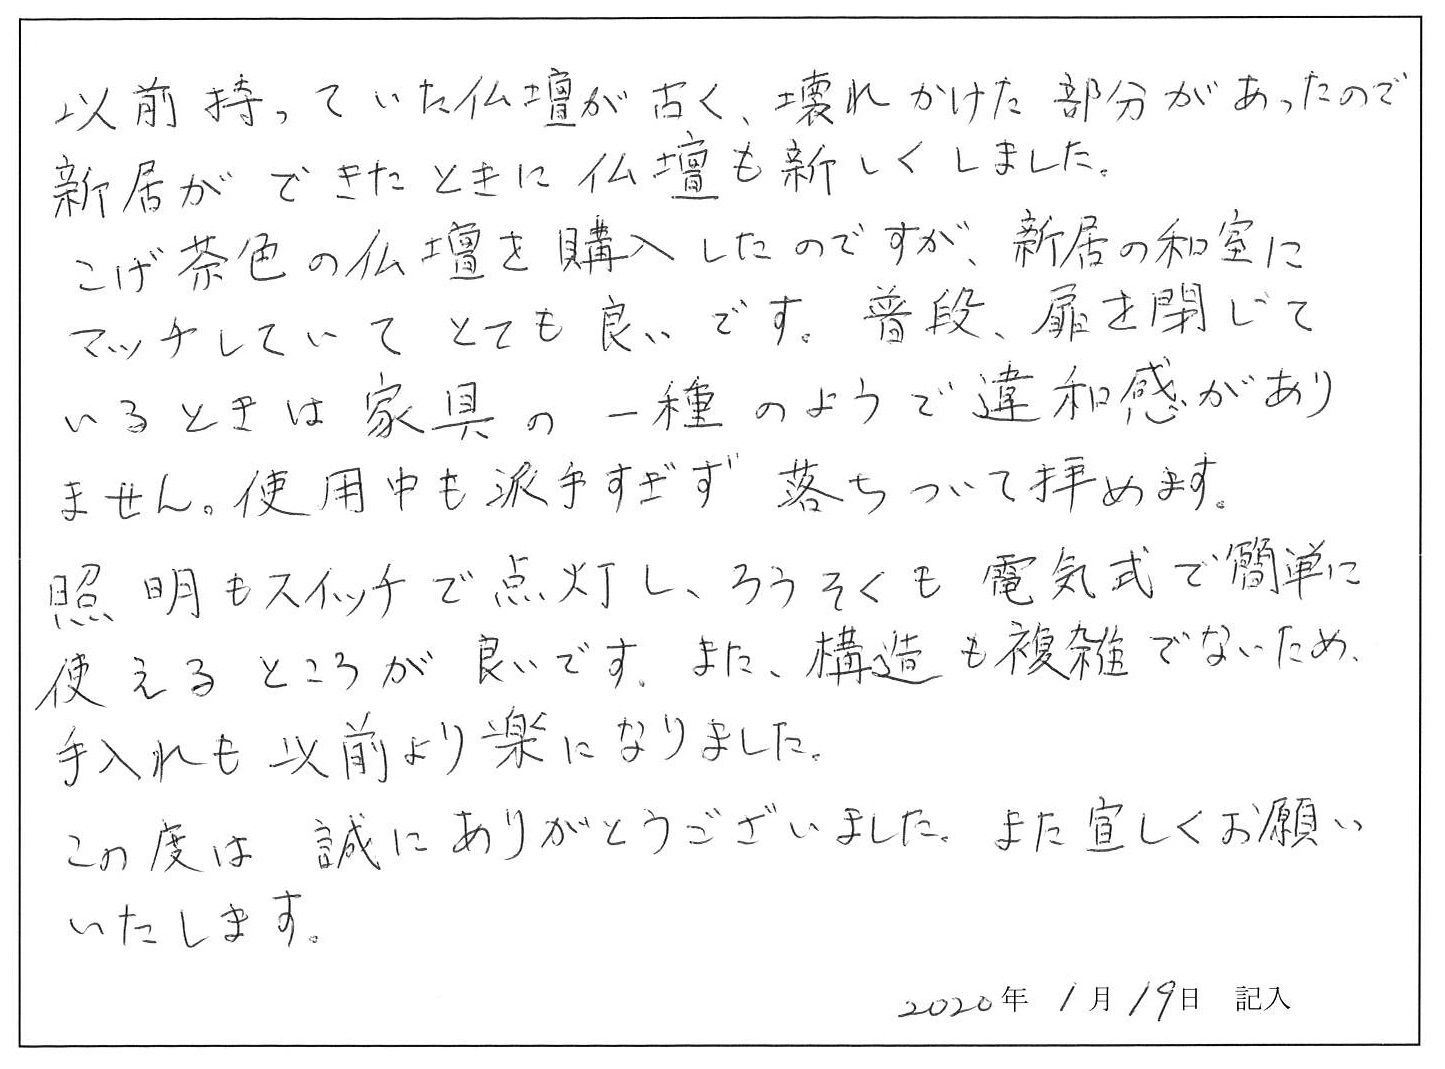 以前持っていた仏壇が古く、壊れかけた部分があったので
新居ができたときに仏壇も新しくしました。
こげ茶色の仏壇を購入したのですが、新居の和室に
マッチしていてとても良いです。普段、扉を閉じて
いるときは家具の一種のようで違和感があり
ません。使用中も派手すぎず落ちついて拝めます。
照明もスイッチで点灯し、ろうそくも電気式で簡単に
使えるところが良いです。また、構造も複雑でないため、
手入れも以前より楽になりました。
この度は誠にありがとうございました。また宜しくお願い
いたします。
2020年 1月19日 記入